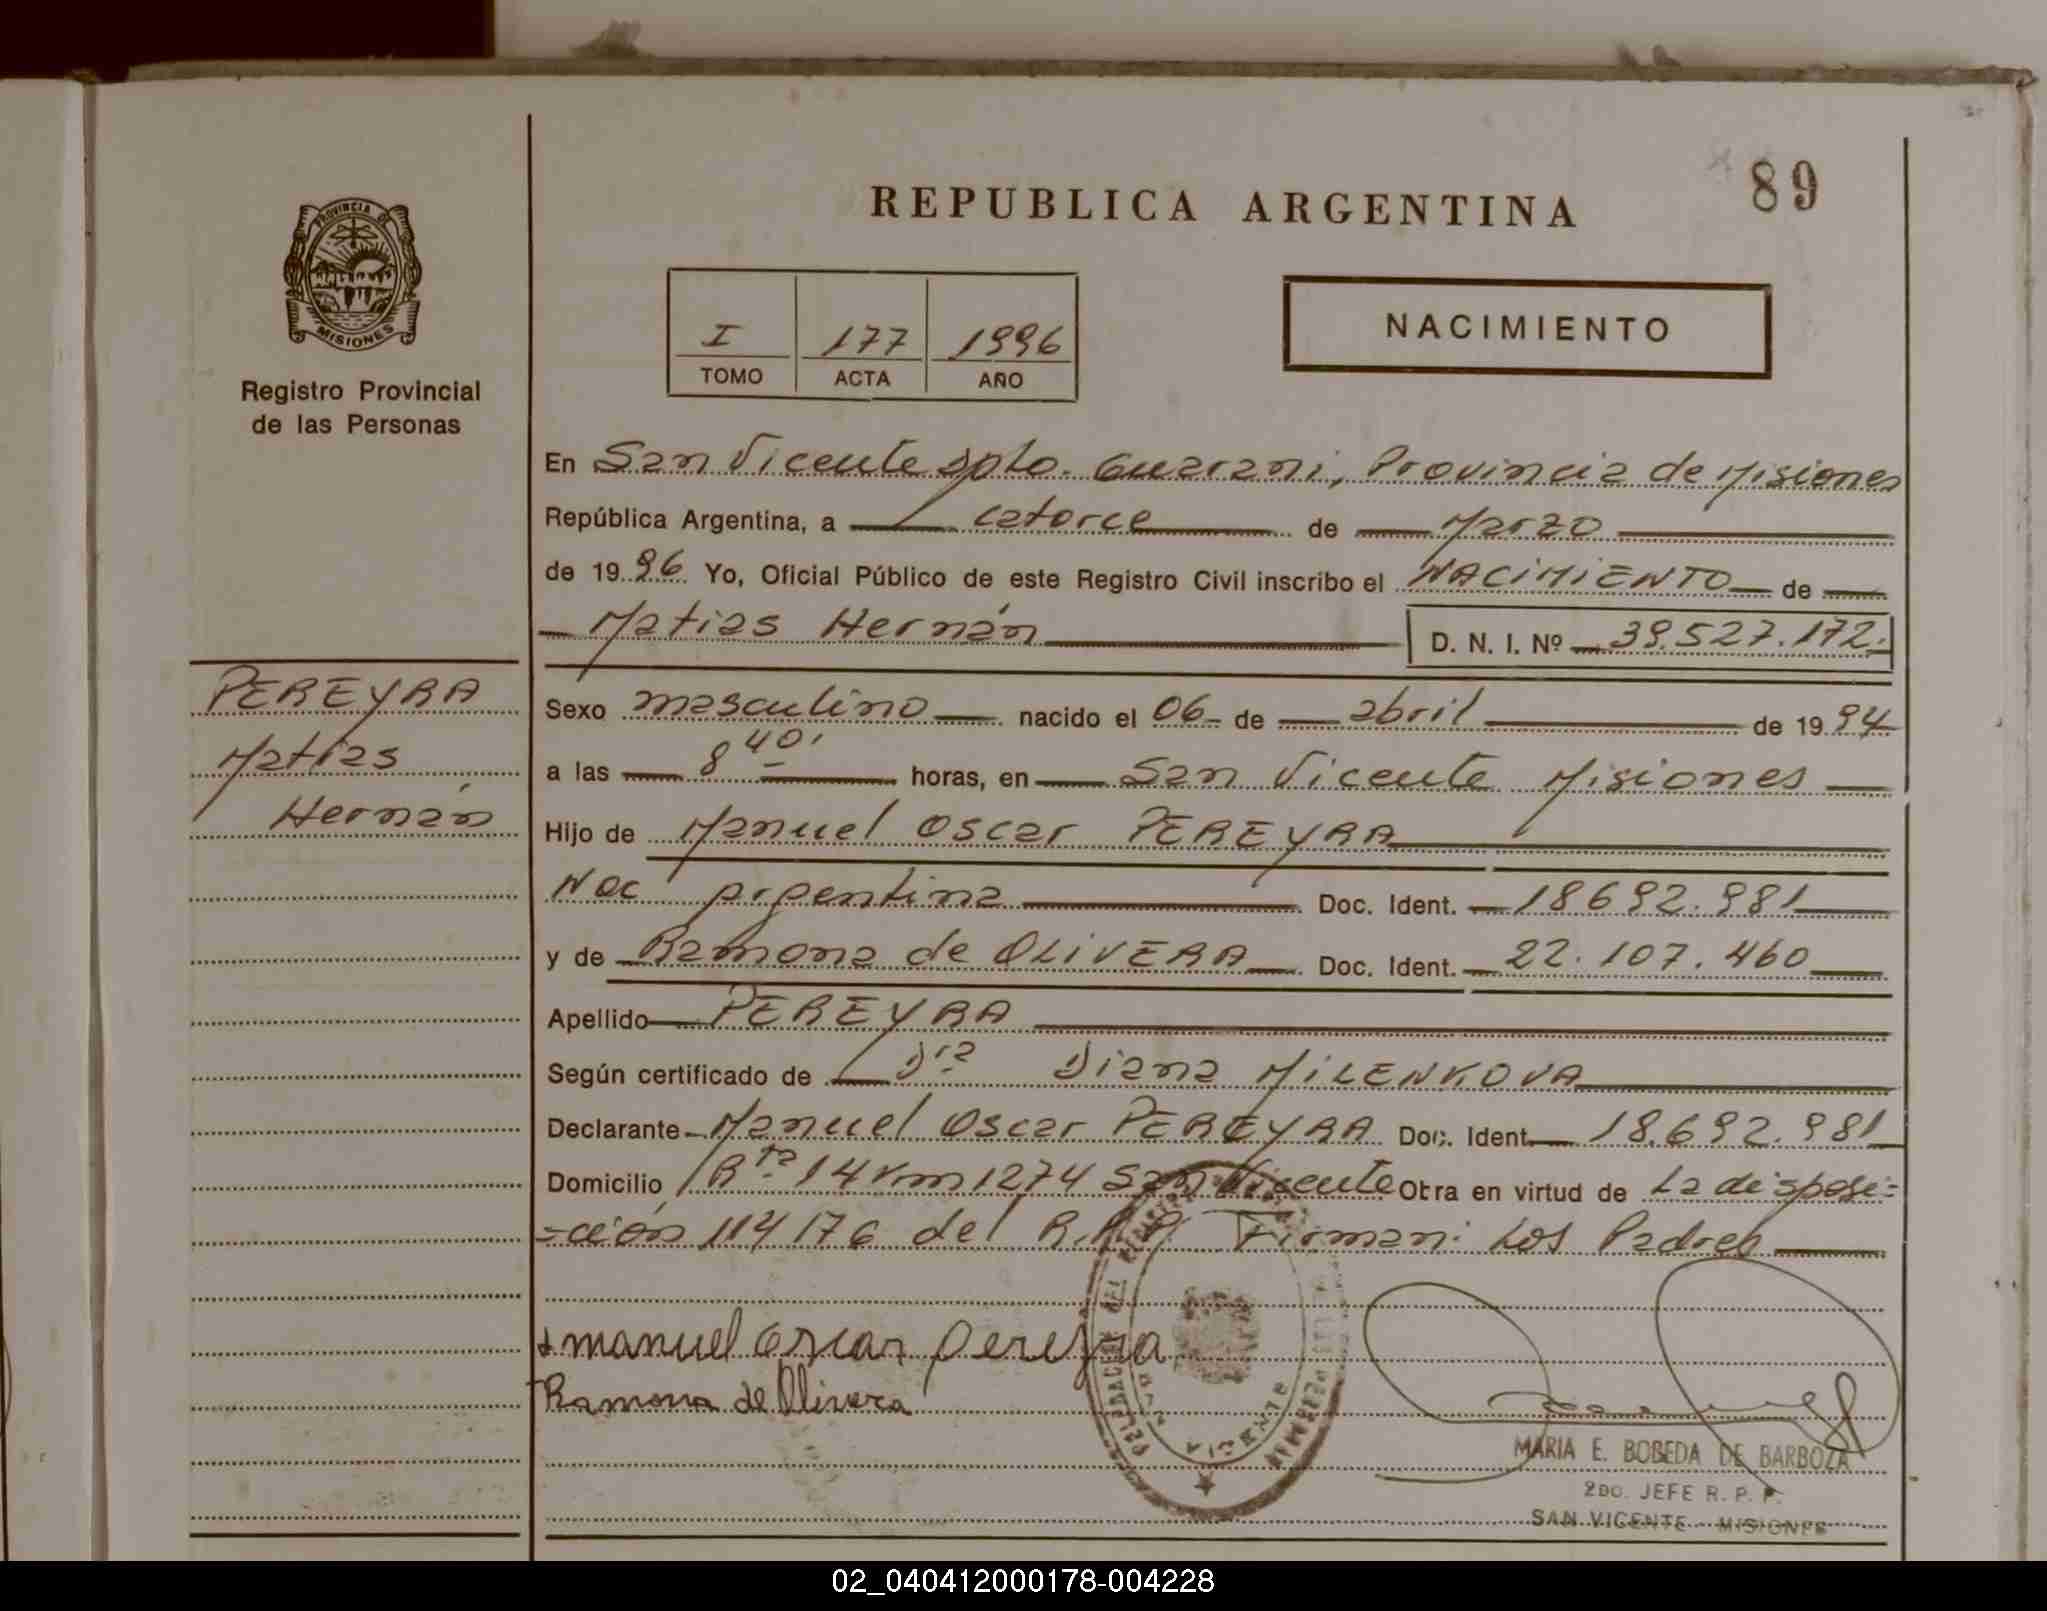 89
REPUBLICA ARGENTINA
PROVINCIA DE
MISIONES
Registro Provincial
de las Personas
I 177 1996
TOMO ACTA AÑO
NACIMIENTO
En San Vicente Dpto. Guarani, Provincia de Misiones
República Argentina, a catorce de Marzo
de 1996 Yo, Oficial Público de este Registro Civil inscribo el NACIMIENTO de
Matias Hernán D. N. I. Nº 39.527.172.
PEREYRA
Matías
Hernán
Sexo masculino nacido el 06 de abril de 1994
a las 8 40' horas, en San Vicente Misiones
Hijo de Manuel Oscar PEREYRA
Nac Argentina Doc. Ident. 18692.981
y de Ramona de OLIVERA Doc. Ident. 22.107.460
Apellido PEREYRA
Según certificado de Dra Diana MILENKOVA
Declarante Manuel Oscar PEREYRA Doc. Ident. 18.692.981
Domicilio Rta 14 Km 1274 San Vicente Otra en virtud de La disposi=
=ción 114/76 del R.P.P. Firman: Los Padres
Manuel Oscar Pereyra
Ramona de Olivera
MARIA E. BOBEDA DE BARBOZA
2DO. JEFE R. P. P.
SAN VICENTE - MISIONES
02_040412000178-004228